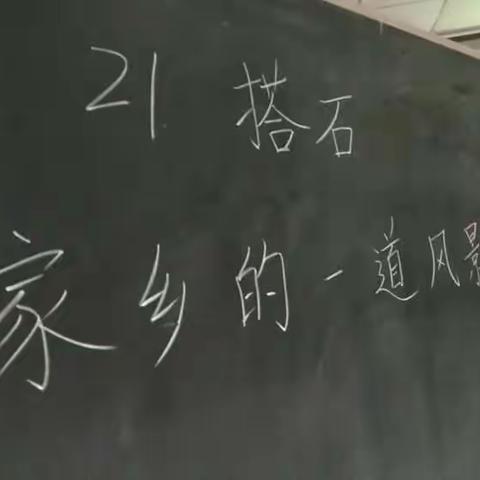 21 搭石
家乡的一道风景